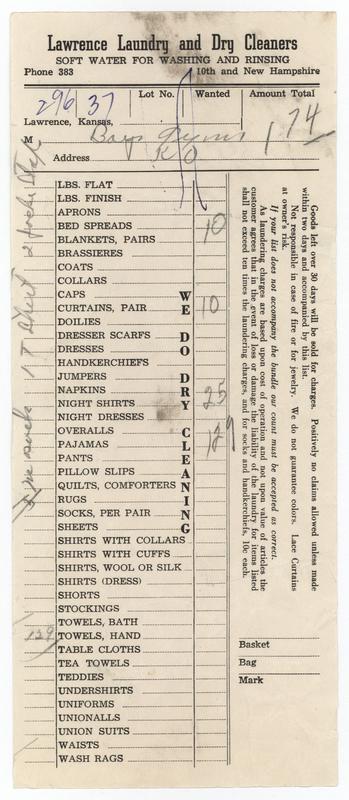 Lawrence Laundry and Dry Cleaners
SOFT WATER FOR WASHING AND RINSING
Phone 383 10th and New Hampshire
296 37 Lot No. Wanted Amount Total
Lawrence, Kansas,
M Boys Gyms 1 74
Address K O
LBS. FLAT
LBS. FINISH
APRONS
BED SPREADS 10
BLANKETS, PAIRS
BRASSIERES
COATS
COLLARS
CAPS
CURTAINS, PAIR 10
DOILIES
DRESSER SCARFS
DRESSES
HANDKERCHIEFS
JUMPERS
NAPKINS
NIGHT SHIRTS 25
NIGHT DRESSES
OVERALLS
PAJAMAS 129
PANTS
PILLOW SLIPS
QUILTS, COMFORTERS
RUGS
SOCKS, PER PAIR
SHEETS
SHIRTS WITH COLLARS
SHIRTS WITH CUFFS
SHIRTS, WOOL OR SILK
SHIRTS (DRESS)
SHORTS
STOCKINGS
TOWELS, BATH
129 TOWELS, HAND
TABLE CLOTHS
TEA TOWELS
TEDDIES
UNDERSHIRTS
UNIFORMS
UNIONALLS
UNION SUITS
WAISTS
WASH RAGS
WE DO DRY CLEANING
Goods left over 30 days will be sold for charges. Positively no claims allowed unless made
within two days and accompanied by this list.
Not responsible in case of fire or for jewelry. We do not guarantee colors. Lace Curtains
at owner's risk.
If your list does not accompany the bundle our count must be accepted as correct.
As laundering charges are based upon cost of operation and not upon value of articles the
customer agrees that in the event of loss or damage the liability of the laundry for items listed
shall not exceed ten times the laundering charges, and for socks and handkerchiefs, 10c each.
Basket
Bag
Mark